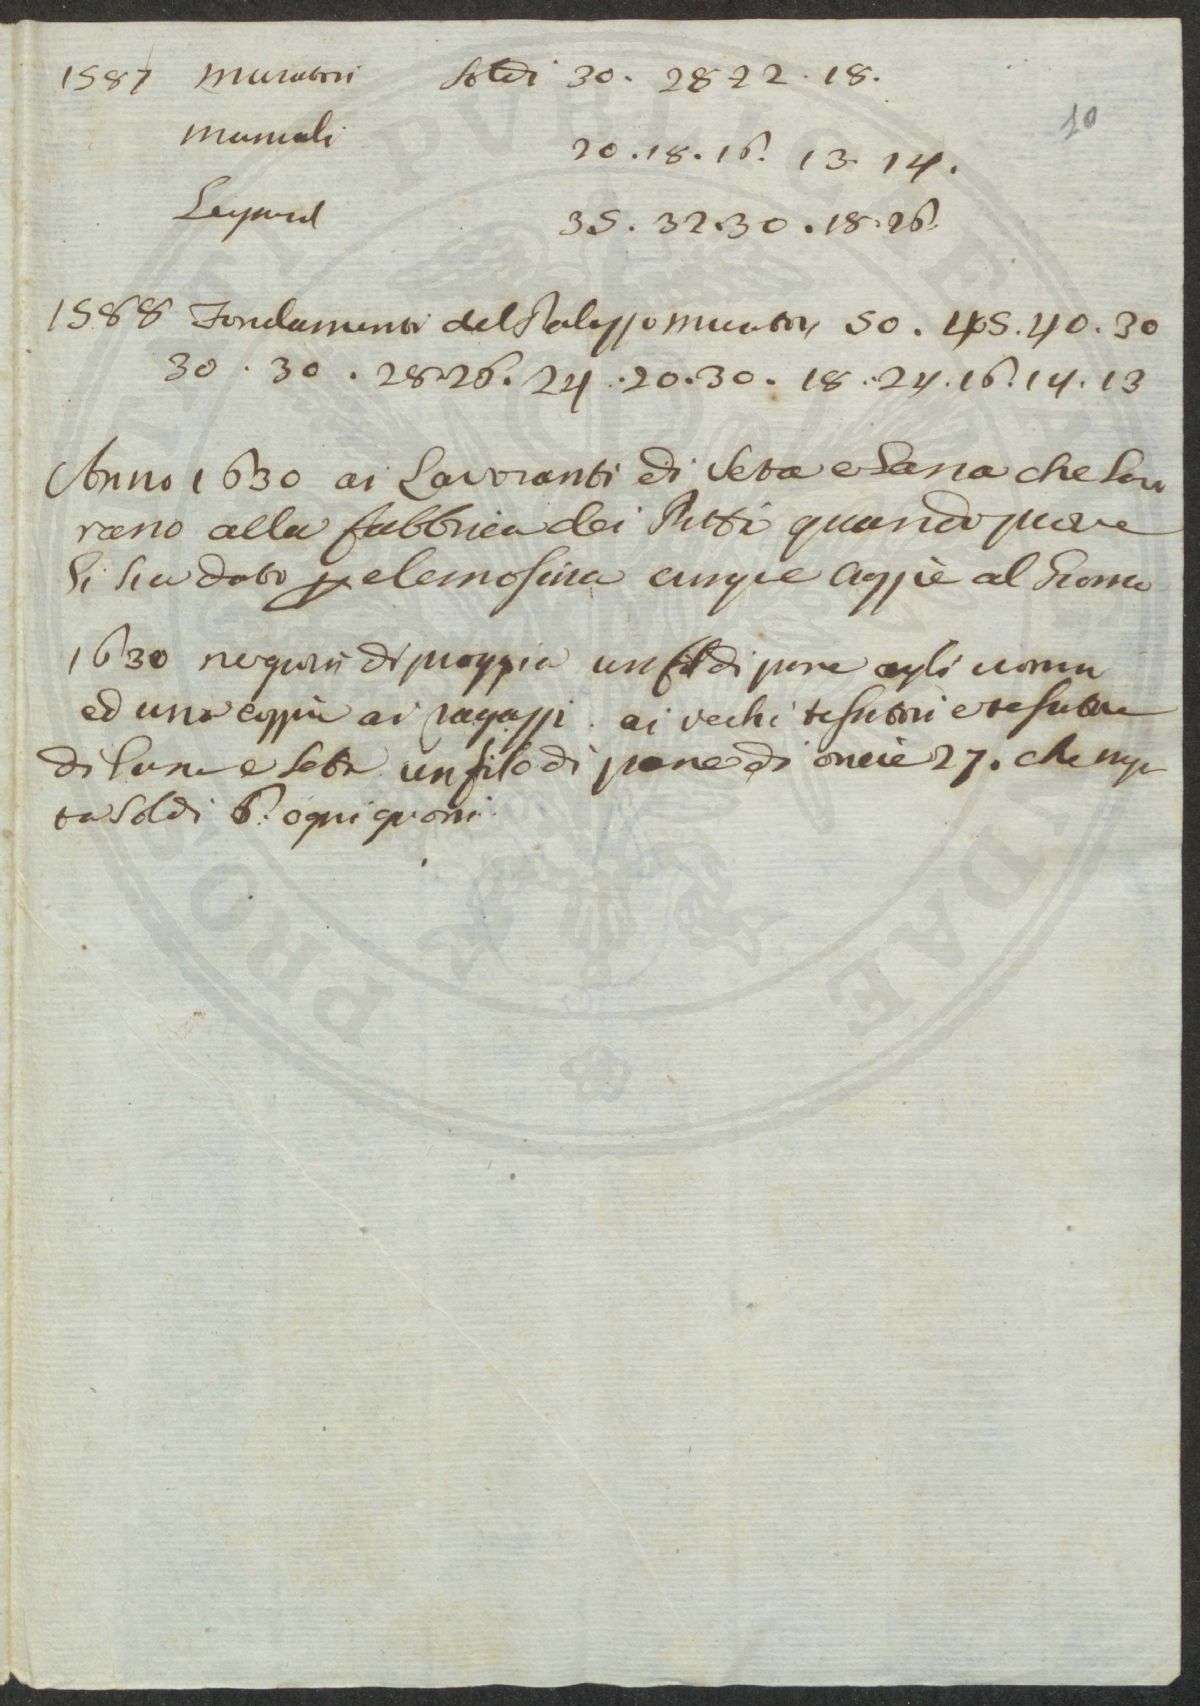 1587 Muratori Soldi 30. 28 22. 18.
10
Manuali 20. 18. 16. 13 14.
35. 32. 30. 18. 26.
1588 Fondamenti del Palazzo Muratori 50. 45. 40. 30
30. 30. 28 26. 24. 20. 30. 18. 24. 16. 14. 13
Anno 1630 ai Lavoranti di Seta e Lana che lavo
rano alla fabbrica dei Pitti quando piove
Si sia dato p elemosina cinque coppie al Giorno
1630 ne giorni di pioggia un filo di pane agli uomini
ed una coppia ai ragazzi. ai vechi tesutori e tesutore
di Lana e Seta un filo di pane di oncie 27. che
ta Soldi 6. ogni giorni.
PUBLICAE
DAE
PRO